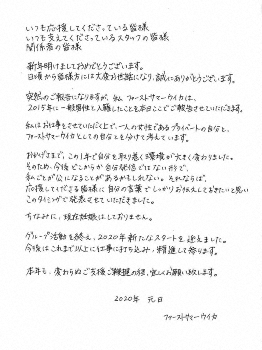 いつも応援してくださっている皆様
いつも支えてくださっているスタッフの皆様
関係者の皆様
新年明けましておめでとうございます。
日頃から皆様方には大変お世話になり、誠にありがとうございます。
突然のご報告になりますが、私、ファーストサマーウイカは、
2015年に一般男性と入籍したことを本日ここでご報告させていただきます。
私はお仕事をさせていただく上で、一人の女性であるプライベートの自分と、
ファーストサマーウイカとしての自分とを分けて考えています。
おかげさまで、この1年で自分を取り巻く環境が大きく変わりました。
そのため、今後どこからか自分発信ではない形で、
私ごとが公になることがあるかもしれない。それならば、
応援してくださる皆様に自分の言葉でしっかりお伝えしておきたいと思い
このタイミングで発表させていただきました。
ちなみに、現在妊娠はしておりません。
グループ活動を終え、2020年新たなスタートを迎えました。
今後はこれまで以上に仕事に打ち込み、精進して参ります。
本年も、変わらぬご支援ご鞭撻の程、宜しくお願い致します。
2020年 元日
ファーストサマーウイカ